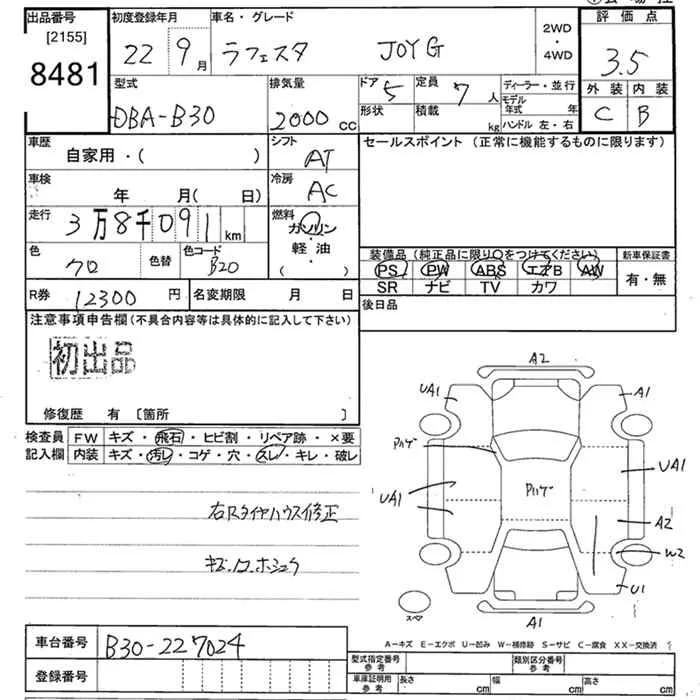 出品番号 [2155] 8481
初度登録年月 22 9月
車名・グレード ラフェスタ JOY G
2WD・4WD
評価点 3.5
外装 C 内装 B
型式 DBA-B30
排気量 2000 cc
ドア 5 形状
定員 7人 積載 kg
ディーラー・並行
モデル年式 年
ハンドル 左・右
車歴 自家用・( )
シフト AT
セールスポイント (正常に機能するものに限ります)
車検 年 月(日)
冷房 AC
走行 3万8千091km
燃料 ガソリン・軽油・( )
色 クロ 色替 色コード B20
装備品 (純正品に限り○をつけてください)
PS PW ABS エアB AW
SR ナビ TV カワ
新車保証書 有・無
R券 12300円 名変期限 月 日
後日品
注意事項申告欄(不具合内容等は具体的に記入して下さい)
初出品
修復歴 有 〔箇所 〕
検査員記入欄
FW キズ・飛石・ヒビ割・リペア跡・×要
内装 キズ・汚レ・コゲ・穴・スレ・キレ・破レ
右Rタイヤハウス修正
A2
UA1
A1
Pハゲ
Pハゲ
UA1
UA1
A2
W2
U1
A1
スペア
A-キズ E-エクボ U-凹み W-補修跡 S-サビ C-腐食 XX-交換済
車台番号 B30-227024
登録番号
型式指定番号 参考
類別区分番号 参考
車庫証明用 参考 長さ cm 幅 cm 高さ cm